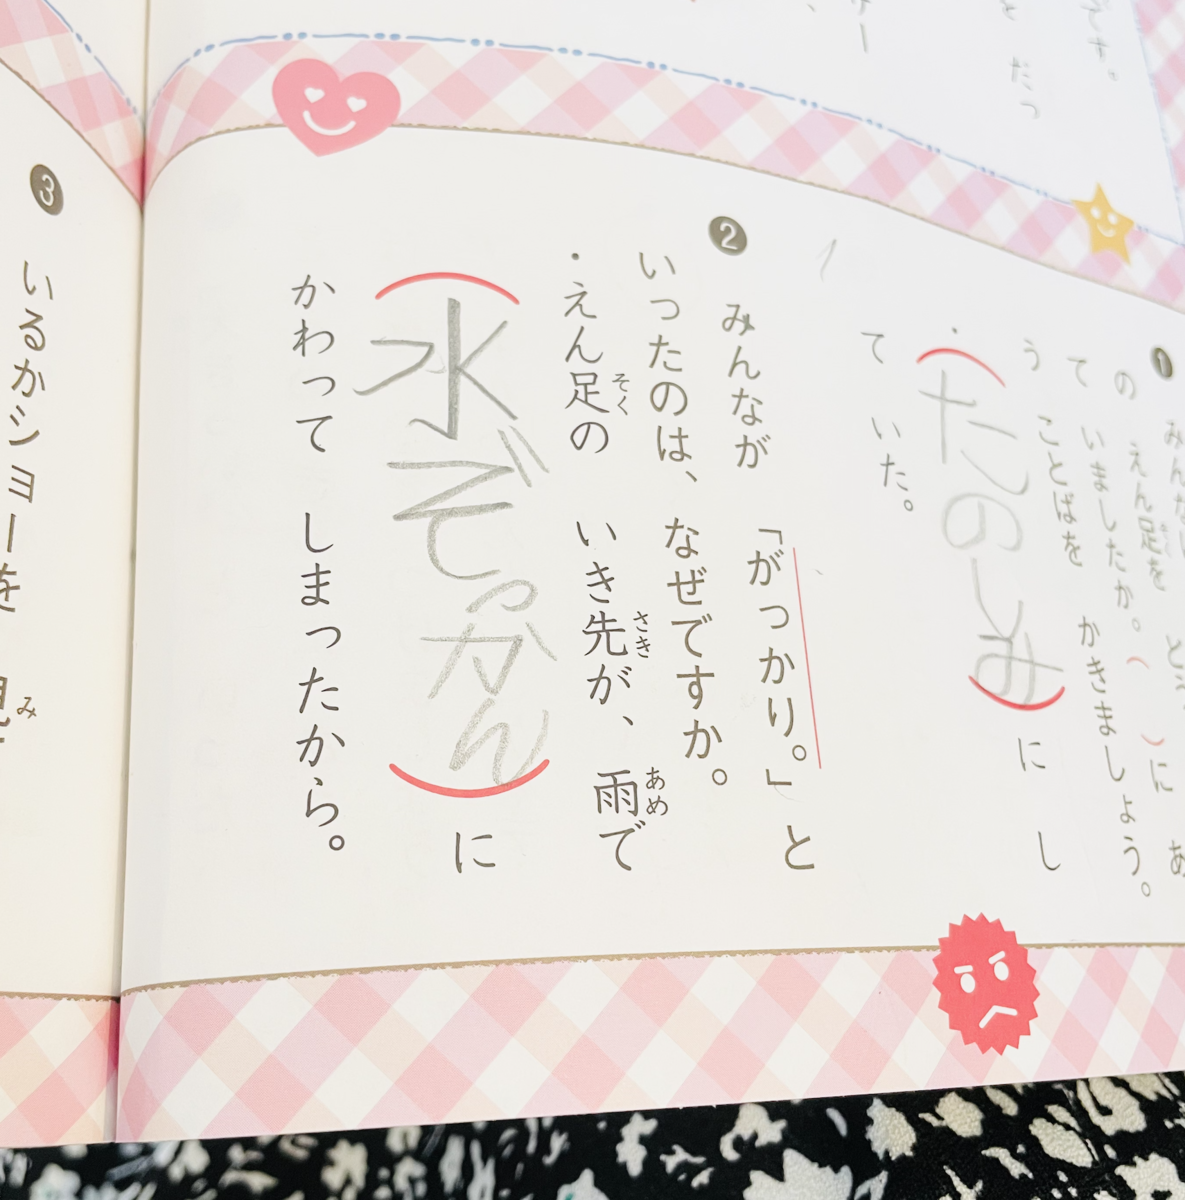 ❶ みんなは
の えん足を
そく
て いましたか。（ ）に あ
う ことばを かきましょう。
・（たのしみ）に し
て いた。
❷ みんなが 「がっかり。」と
いったのは、なぜですか。
・えん足の いき先が、雨で
そく さき あめ
（水ぞっかん）に
かわって しまったから。
❸ いるかショーを
み